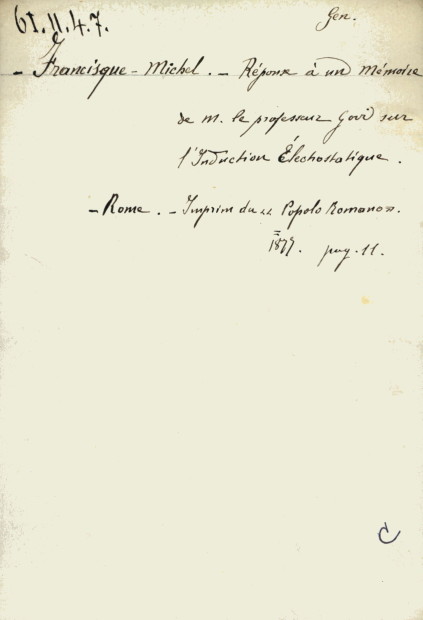 61.11.4.7.
Gen.
- Francisque - Michel. - Réponse à un Mémoire
de M. le professeur Govi sur
l'Induction Électrostatique.
- Rome. - Imprim du « Popolo Romano ».
1879. pag. 11.
C